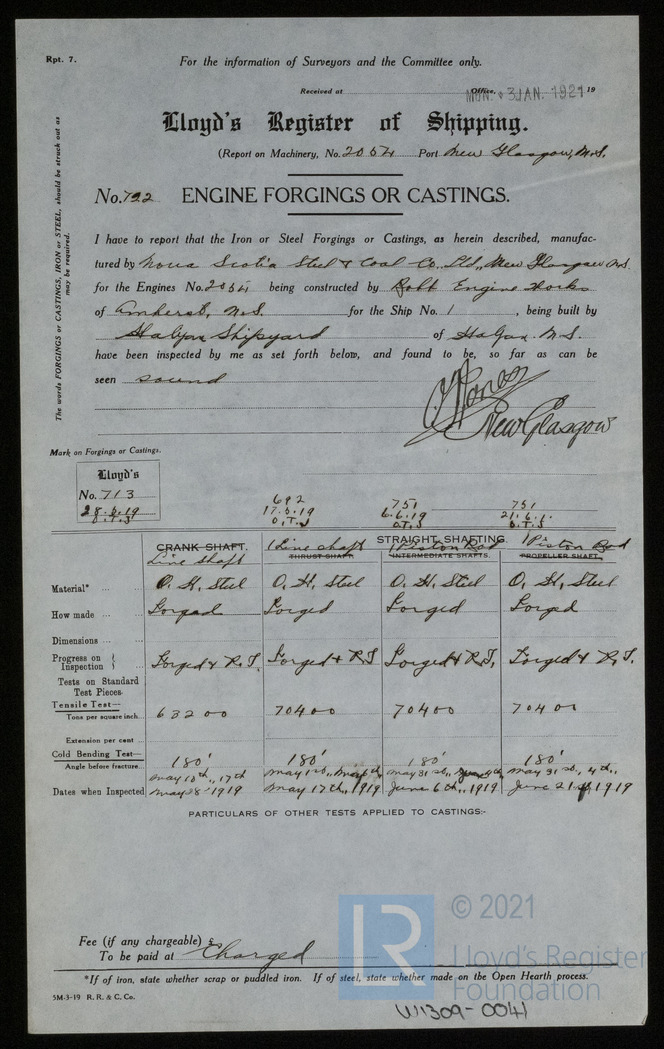 Rpt. 7.
For the information of Surveyors and the Committee only.
Received at Office, 19
MON. 3 JAN. 1921
Lloyd's Register of Shipping.
(Report on Machinery, No. 2054 Port New Glasgow, N.S.
No. 792 ENGINE FORGINGS OR CASTINGS.
The words FORGINGS or CASTINGS, IRON or STEEL, should be struck out as may be required.
I have to report that the Iron or Steel Forgings or Castings, as herein described, manufac-
tured by Nova Scotia Steel & Coal Co. Ltd., New Glasgow N.S.
for the Engines No. 2054 being constructed by Robb Engine Works
of Amherst, N.S. for the Ship No. 1, being built by
Halifax Shipyard of Halifax N.S.
have been inspected by me as set forth below, and found to be, so far as can be
seen sound
New Glasgow
Mark on Forgings or Castings.
Lloyd's
No. 713
28.5.19
O.T.J
692
17.5.19
O.T.J
751
6.6.19
O.T.J
751
21.6.1.
O.T.J
CRANK SHAFT. STRAIGHT SHAFTING.
Line Shaft 1 Line shaft 1 Piston Rod 1 Piston Rod
THRUST SHAFT. INTERMEDIATE SHAFTS. PROPELLER SHAFT.
Material* O. H. Steel O. H. Steel O. H. Steel O. H. Steel
How made Forged Forged Forged Forged
Dimensions
Progress on Inspection Forged & R.T. Forged & R.T. Forged & R.T. Forged & R.T.
Tests on Standard
Test Pieces.
Tensile Test—
Tons per square inch. 63200 70400 70400 70400
Extension per cent
Cold Bending Test—
Angle before fracture 180° 180° 180° 180°
May 10th, 17th May 31st, May 31st, 4th,
Dates when Inspected May 28' 1919 May 17th, 1919 June 6th, 1919 June 21 1919
PARTICULARS OF OTHER TESTS APPLIED TO CASTINGS:-
Fee (if any chargeable) £
To be paid at Charged
*If of iron, state whether scrap or puddled iron. If of steel, state whether made on the Open Hearth process.
5M.3-19 R. R. & C. Co.
LR
© 2021
Lloyd's Register
Foundation
W1309-0041